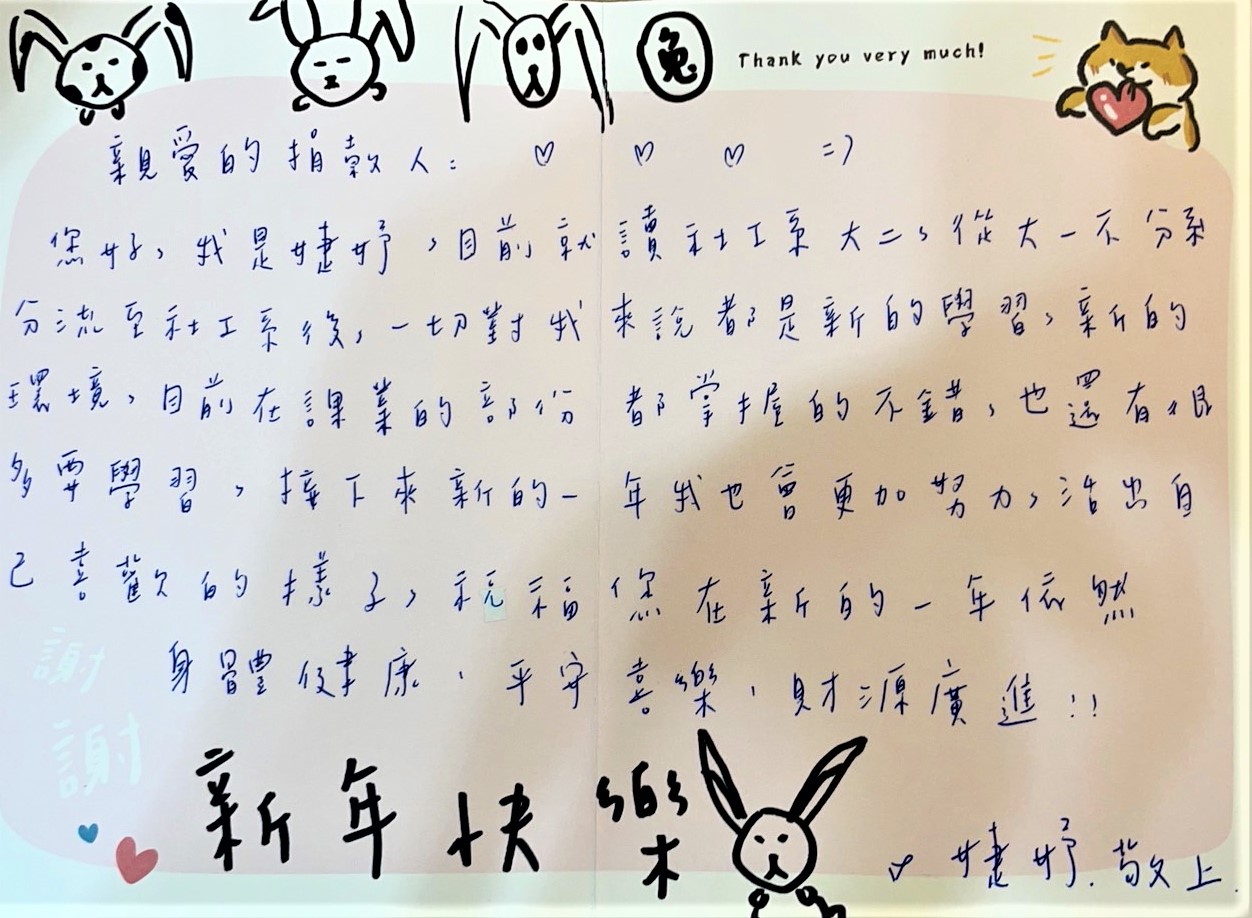 兔 Thank you very much!
親愛的捐款人: ♡ ♡ ♡ =)
您好，我是婕妤，目前就讀社工系大二，從大一不分系
分流至社工系後，一切對我來說都是新的學習，新的
環境，目前在課業的部份都掌握的不錯，也還有很
多要學習，接下來新的一年我也會更加努力，活出自
己喜歡的樣子，祝福您在新的一年依然
身體健康、平安喜樂、財源廣進!!
謝
謝
新年快樂
♡ 婕妤. 敬上.